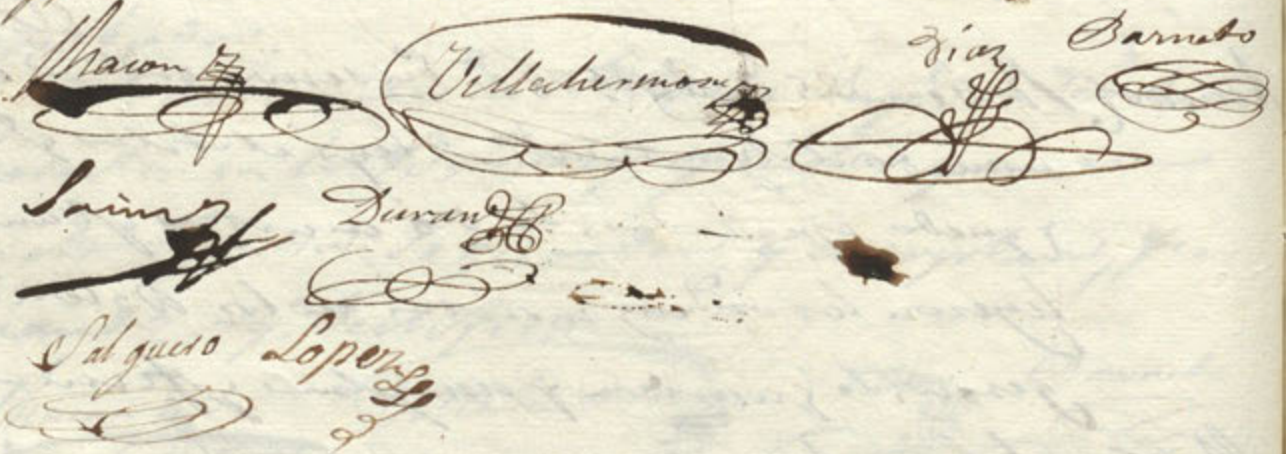 Chacon Villahermosa Diaz Barneto
Sainz Duran
Salguero Lopez